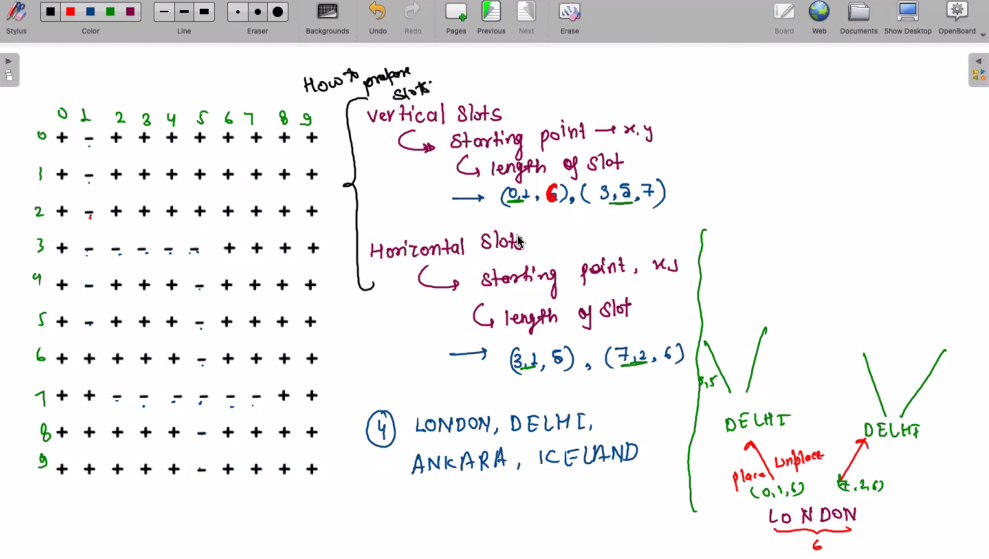 Stylus Color Line Eraser Backgrounds Undo Redo Pages Previous Next Erase Board Web Documents Show Desktop OpenBoard
How to prepare
slots.
0 1 2 3 4 5 6 7 8 9
0 + - + + + + + + + +
1 + - + + + + + + + +
2 + - + + + + + + + +
3 + - - - - - + + + +
4 + - + + + - + + + +
5 + - + + + - + + + +
6 + + + + + - + + + +
7 + + - - - - - - + +
8 + + + + + - + + + +
9 + + + + + - + + + +
Vertical Slots
Starting point → x,y
length of slot
→ (0,1, 6), (3,5,7)
Horizontal Slots
starting point, x,y
length of slot
→ (3,1,5), (7,2,6)
4 LONDON, DELHI,
ANKARA, ICELAND
3,5
DELHI DELHI
place unplace
(0,1,6) (7,2,6)
LONDON
6